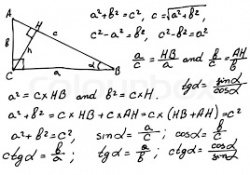 A
H
B
C
b
h
c
a
α
a²+b²=c², c=√a²+b²,
c²-a²=b², c²-b²=a²
a/c = HB/a and b/c = AH/b
tgα = sinα/cosα
a²=c×HB and b²=c×H.
a²+b²=c×HB+c×AH=c×(HB+AH)=c²
a²+b²=c², sinα=a/c; cosα=b/c
ctgα=b/a; tgα=a/b; ctgα=cosα/sinα